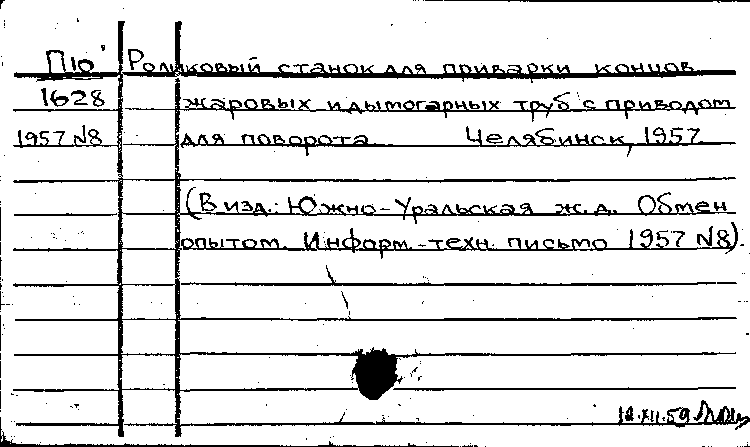 П10 Роликовый станок для приварки концов
1628 жаровых и дымогарных труб с приводом
1957 N8 для поворота Челябинск, 1957
(В изд.: Южно-Уральская ж.д. Обмен
опытом. Информ.-техн. письмо 1957 N8).
XII.59